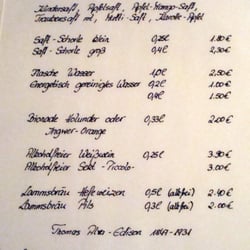 Kirschsaft, Apfelsaft, Apfel-Mango-Saft,
Traubensaft rot, Multi-Saft, Karotte-Apfel
Saft-Schorle klein 0,25l 1.80 €
Saft-Schorle groß 0,4l 2.30 €
Flasche Wasser 1,0l 2.50 €
Energetisch gereinigtes Wasser 0,2l 1.00 €
0,4l 1.50 €
Bionade Holunder oder 0,33l 2.00 €
Ingwer-Orange
Alkoholfreier Weißwein 0,25l 3.30 €
Alkoholfreier Sekt-Piccolo 3.00 €
Lammsbräu Hefeweizen 0,5l (alkfrei) 2.40 €
Lammsbräu Pils 0,3l (alkfrei) 2.00 €
Thomas Alva-Edison 1847-1931